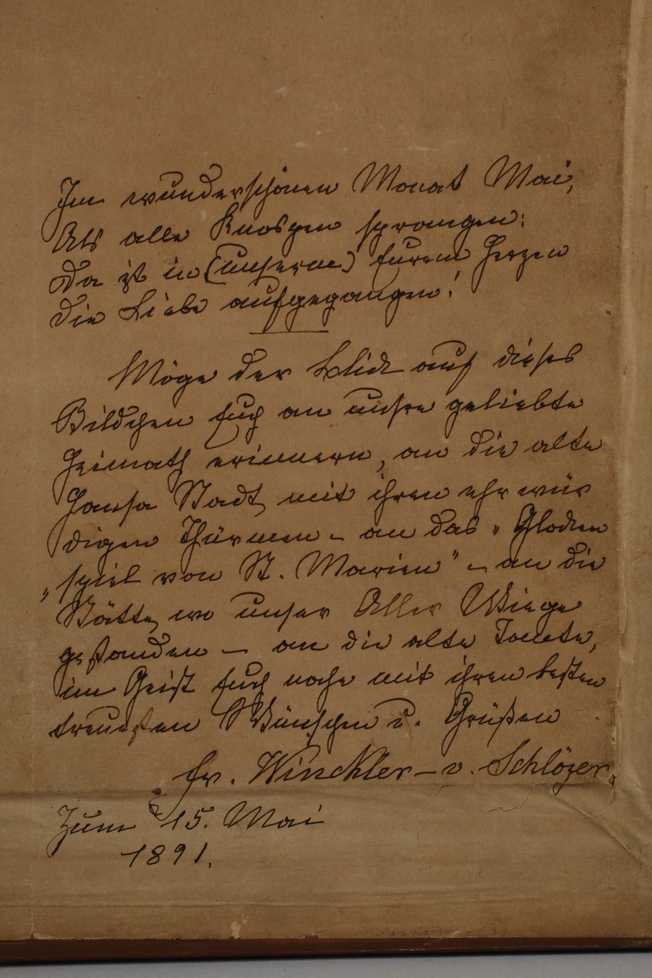 Im wunderschönen Monat Mai,
Als alle Knospen sprangen:
Da ist in (unserem) Eurem Herzen
die Liebe aufgegangen!
Möge der Blick auf dieses
Bildchen Euch an unsre geliebte
Heimath erinnern, an die alte
Hansa Stadt mit ihren ehrwür
digen Thürmen – an das „Glocken
„spiel von St. Marien" – an die
Stätte, wo unser Aller Wiege
gestanden – an die alte Tante,
im Geist Euch nahe mit ihren besten
treuesten Wünschen u. Grüßen
Fr. Winckler – v. Schlözer.
Zum 15. Mai
1891.